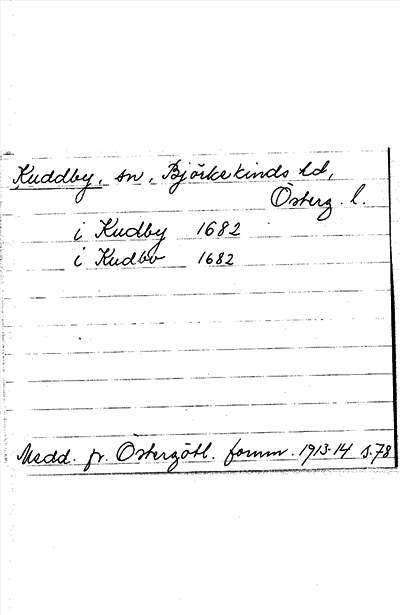 Kuddby, sn, Björkekinds hd,
Österg. l.
i Kudby 1682
i Kudbo 1682
Medd. fr. Östergötl. fornm. 1913-14 s.78